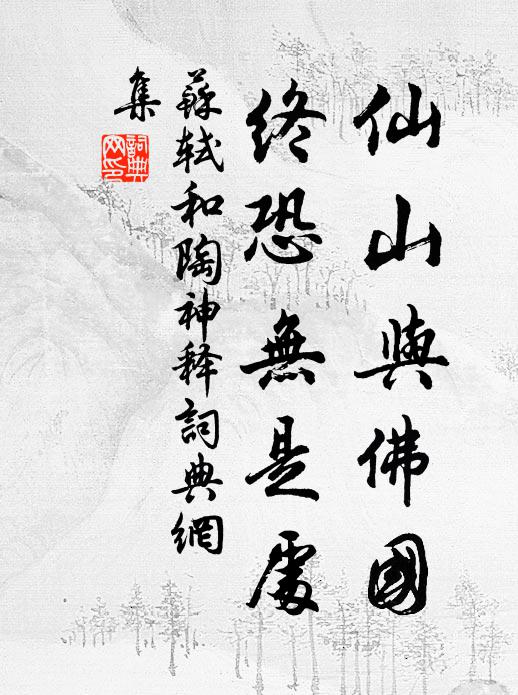 仙山與佛國
終恐無是處
蘇軾和陶神释詞典網
集
詞典
网印